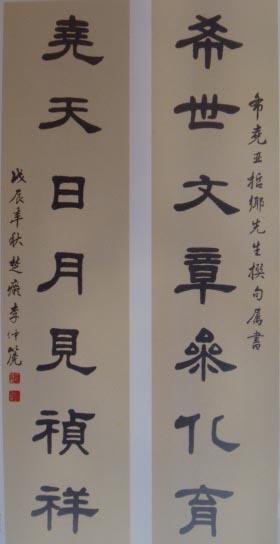 希堯亞哲鄉先生撰句属書
希世文章參化育
堯天日月見禎祥
戊辰年秋楚李仲